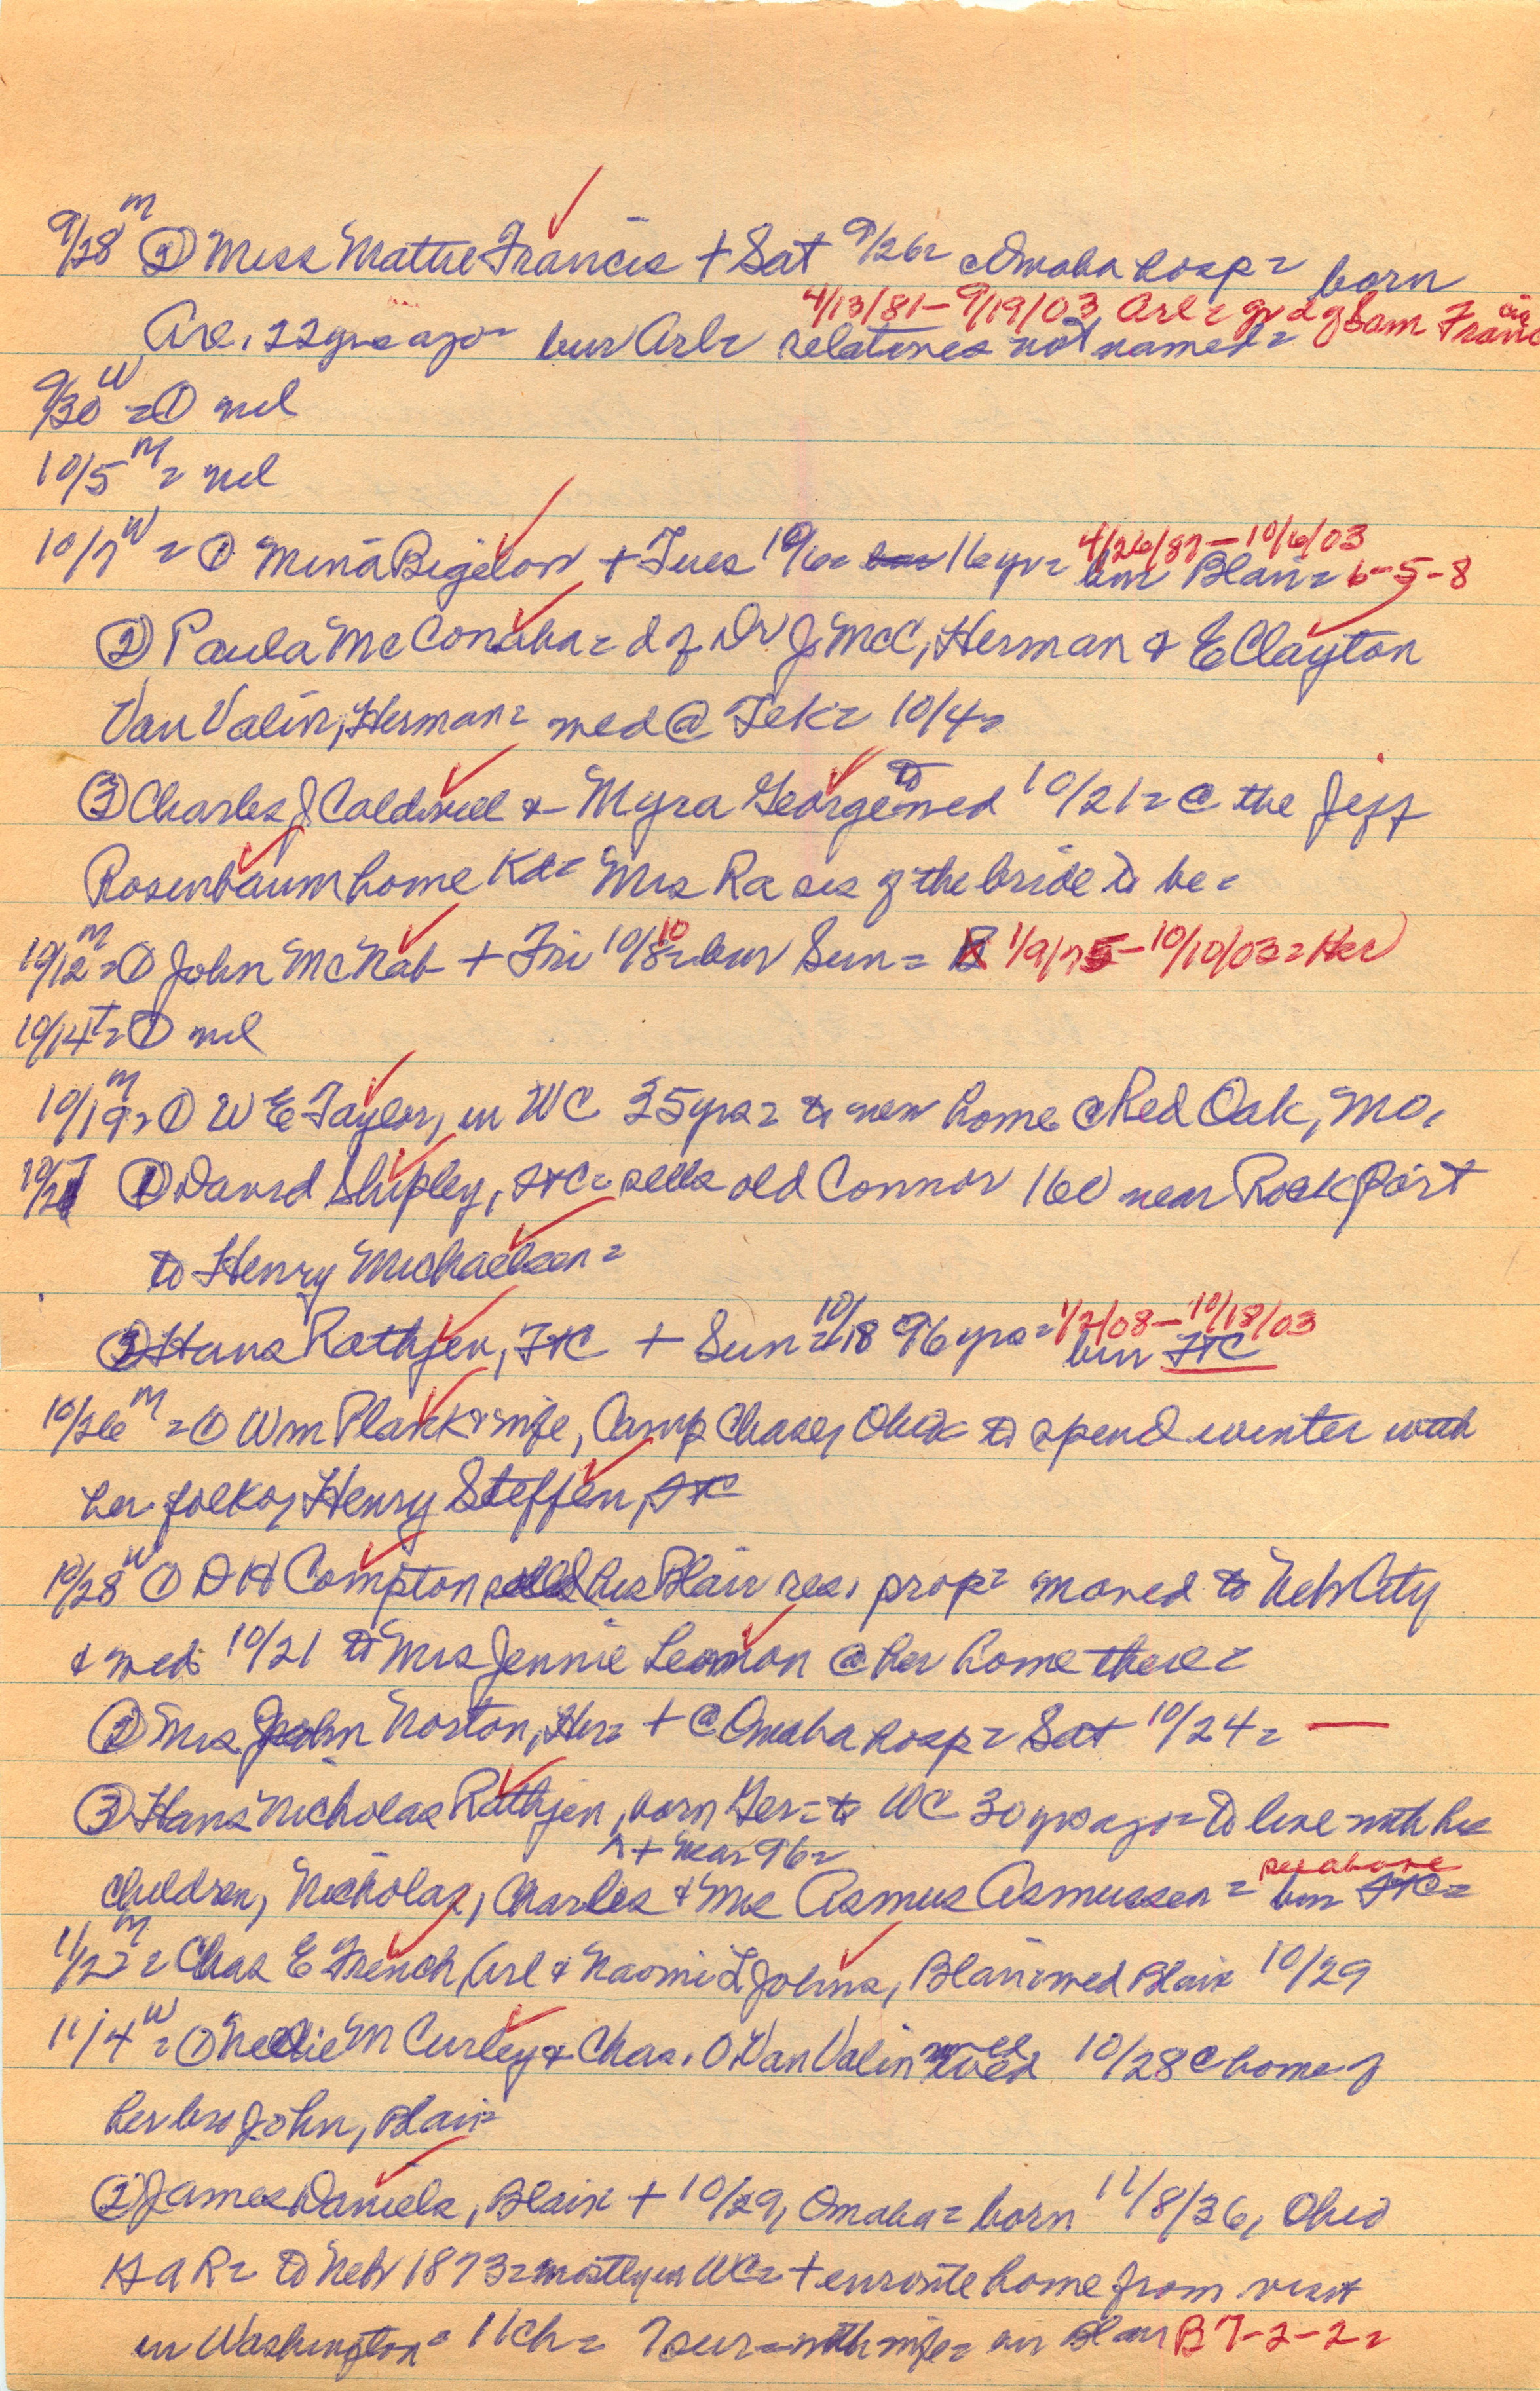 9/28 M ② Miss Mattie Francis + Sat 9/26 = Omaha hosp = born
4/13/81 - 9/19/03 Arl = gv d of Sam Francis
Arl, 22 yrs ago = bur Arl = relatives not named =
9/30 W = ① nil
10/5 M = nil
10/7 W = ① Mina Bigelow + Tues 10/6 = 16 yr = bur Blair = 6-5-8
4/26/87 - 10/6/03
② Paula McConaha = d of Dr J McC, Herman & E Clayton
Van Valin, Herman = med @ Tek = 10/4 =
③ Charles J Caldwell & Myra George to wed 10/21 = @ the Jeff
Rosenbaum home Kd = Mrs R a sis of the bride to be =
10/12 M = ① John McNab + Fri 10/8 10 = bur Sun = 1/9/75 - 10/10/03 = Her
10/14 = ① nil
10/19 M = ① W E Taylor, in WC 35 yrs = to new home @ Red Oak, Mo,
10/21 ① David Shipley, FtC = sells old Connor 160 near Rock Port
to Henry Michaelsen =
② Hans Rathjen, FtC + Sun = 10/18 96 yrs = bur FtC
1/2/08 - 10/18/03
10/26 M = ① Wm Plakk & wife, Camp Chase, Ohio to spend winter with
her folks, Henry Steffen, FtC
10/28 W ① D H Compton sells his Blair res, prop = moved to Neb City
& wed 10/21 to Mrs Jennie Leomon @ her home there =
② Mrs John Norton, Her = + @ Omaha hosp = Sat 10/24 = —
③ Hans Nicholas Rathjen, born Ger = to WC 30 yrs ago = to live with his
^ + near 96 =
children, Nicholas, Charles & Mrs Asmus Asmussen = bur FtC =
see above
11/2 M = Chas E French, Arl & Naomi L Johns, Blair = wed Blair 10/29
11/4 W = ① Nellie M Curley & Chas. O Van Valin wed 10/28 @ home of
her bro John, Blair
② James Daniels, Blair + 10/29, Omaha = born 11/8/36, Ohio
GAR = to Neb 1873 = mostly in WC = + enroute home from visit
in Washington = 11 ch = 7 sur = with wife = bur Blair B 7-2-2 =